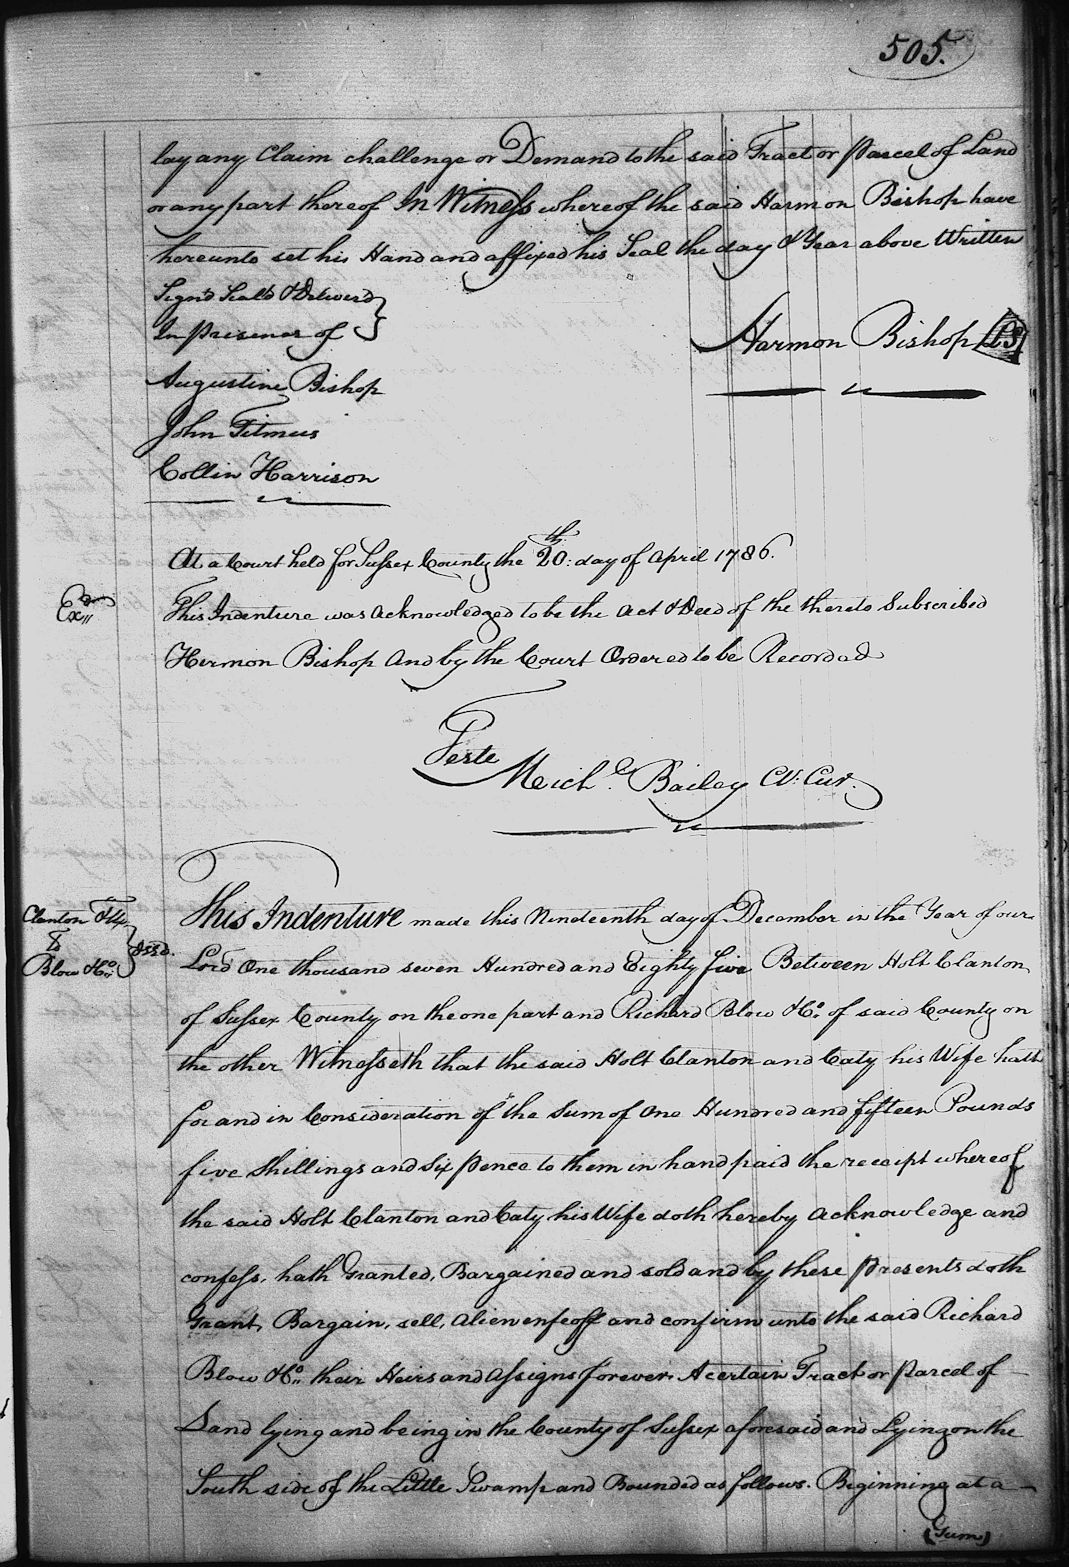 505.
lay any Claim challenge or Demand to the said Tract or parcel of Land
or any part thereof In Witness whereof the said Harmon Bishop have
hereunto set his Hand and affixed his Seal the day & Year above Written
Sign'd Seal'd & Deliverd
In presence of
Harmon Bishop LS
Augustine Bishop
John Titmus
Collin Harrison
At a Court held for Sussex County the 20th: day of April 1786.
Exd
This Indenture was acknowledged to be the Act & Deed of the thereto Subscribed
Hermon Bishop And by the Court Ordered to be Recorded
Teste
Mich.l Bailey Cl: Cur.
Clanton & Ux
To
Blow & Co.
This Indenture made this Nineteenth day of December in the Year of our
Lord One thousand seven Hundred and Eighty five Between Holt Clanton
of Sussex County on the one part and Richard Blow & Co. of said County on
the other Witnesseth that the said Holt Clanton and Caty his Wife hath
for and in Consideration of the Sum of One Hundred and fifteen Pounds
five Shillings and Six pence to them in hand paid the receipt whereof
the said Holt Clanton and Caty his Wife doth hereby acknowledge and
confess, hath Granted, Bargained and sold and by these presents doth
Grant, Bargain, sell, alien enfeoff and confirm unto the said Richard
Blow & Co. their Heirs and Assigns forever. A certain Tract or parcel of
Land lying and being in the County of Sussex aforesaid and Lying on the
South side of the Little Swamp and Bounded as follows. Beginning at a
(Gum)